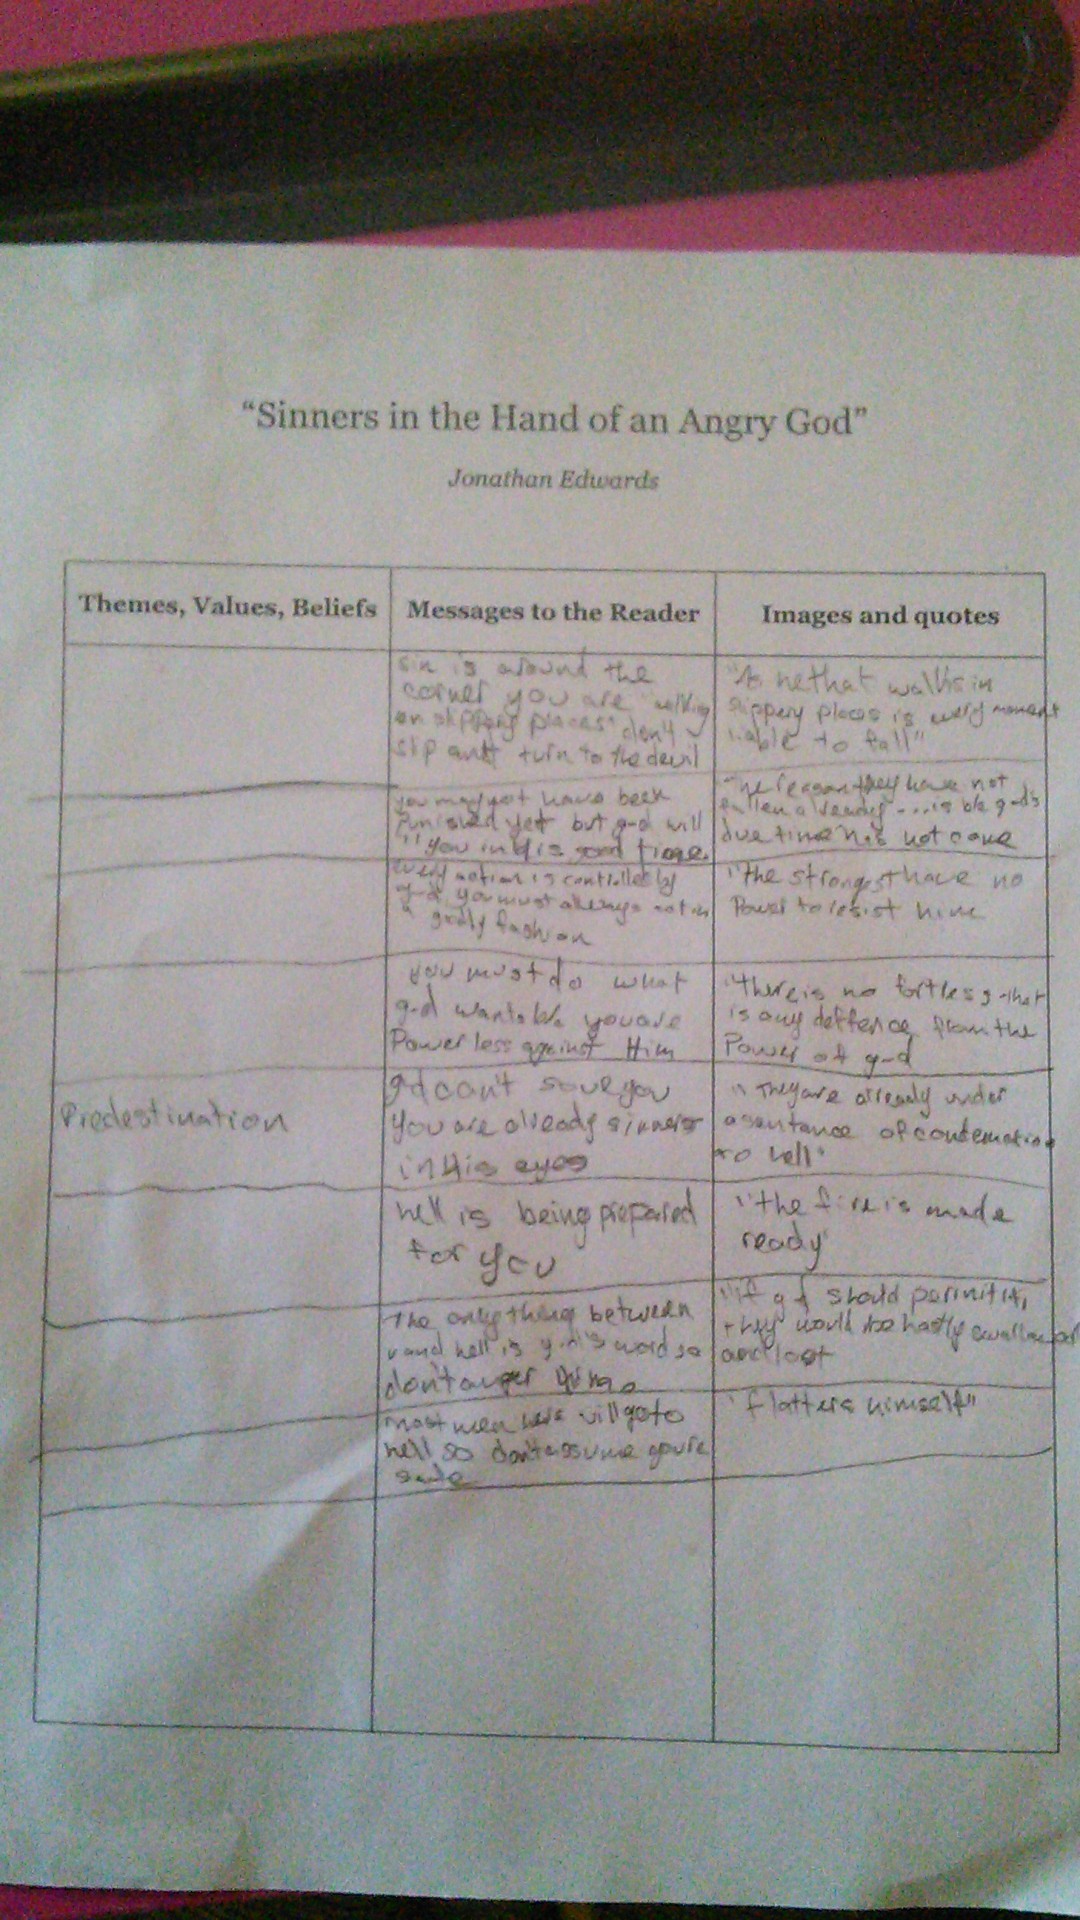 “Sinners in the Hand of an Angry God”
Jonathan Edwards
Themes, Values, Beliefs
Messages to the Reader
Images and quotes
sin is around the
corner you are "walking
on slippery places" don't
slip and turn to the devil
"As he that walks in
slippery places is every moment
liable to fall"
you may not have been
punished yet but g-d will
" you in His good time.
The reason they have not
fallen already ....is b/c g-d's
due time has not come
every action is controlled by
g-d, you must always act in
a godly fashion
"the strongest have no
Power to resist him
you must do what
g-d wants b/c you are
Powerless against Him
"there is no fortless that
is any deffence from the
Power of g-d
Predestination
gd can't save you
you are already sinners
in His eyes
"They are already under
a sentance of condemnation
to hell"
hell is being prepared
for you
"the fire is made
ready"
The only thing between
u and hell is g-d's word so
don't anger Him.
"if g-d should permit it,
they would be hastly swallowed
and lost
most men here will go to
hell so don't assume you're
safe
"flatters himself"